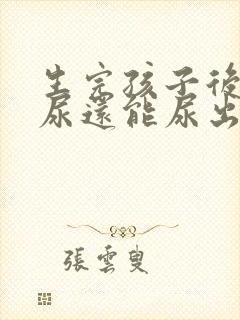 生完孩子後
尿還能尿出
張雲叟